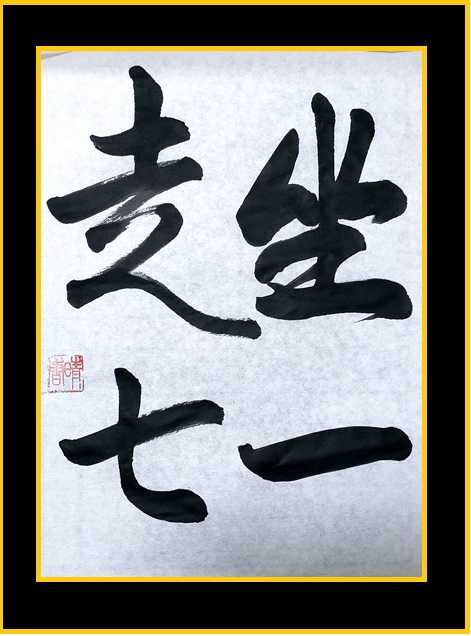 坐一
走七